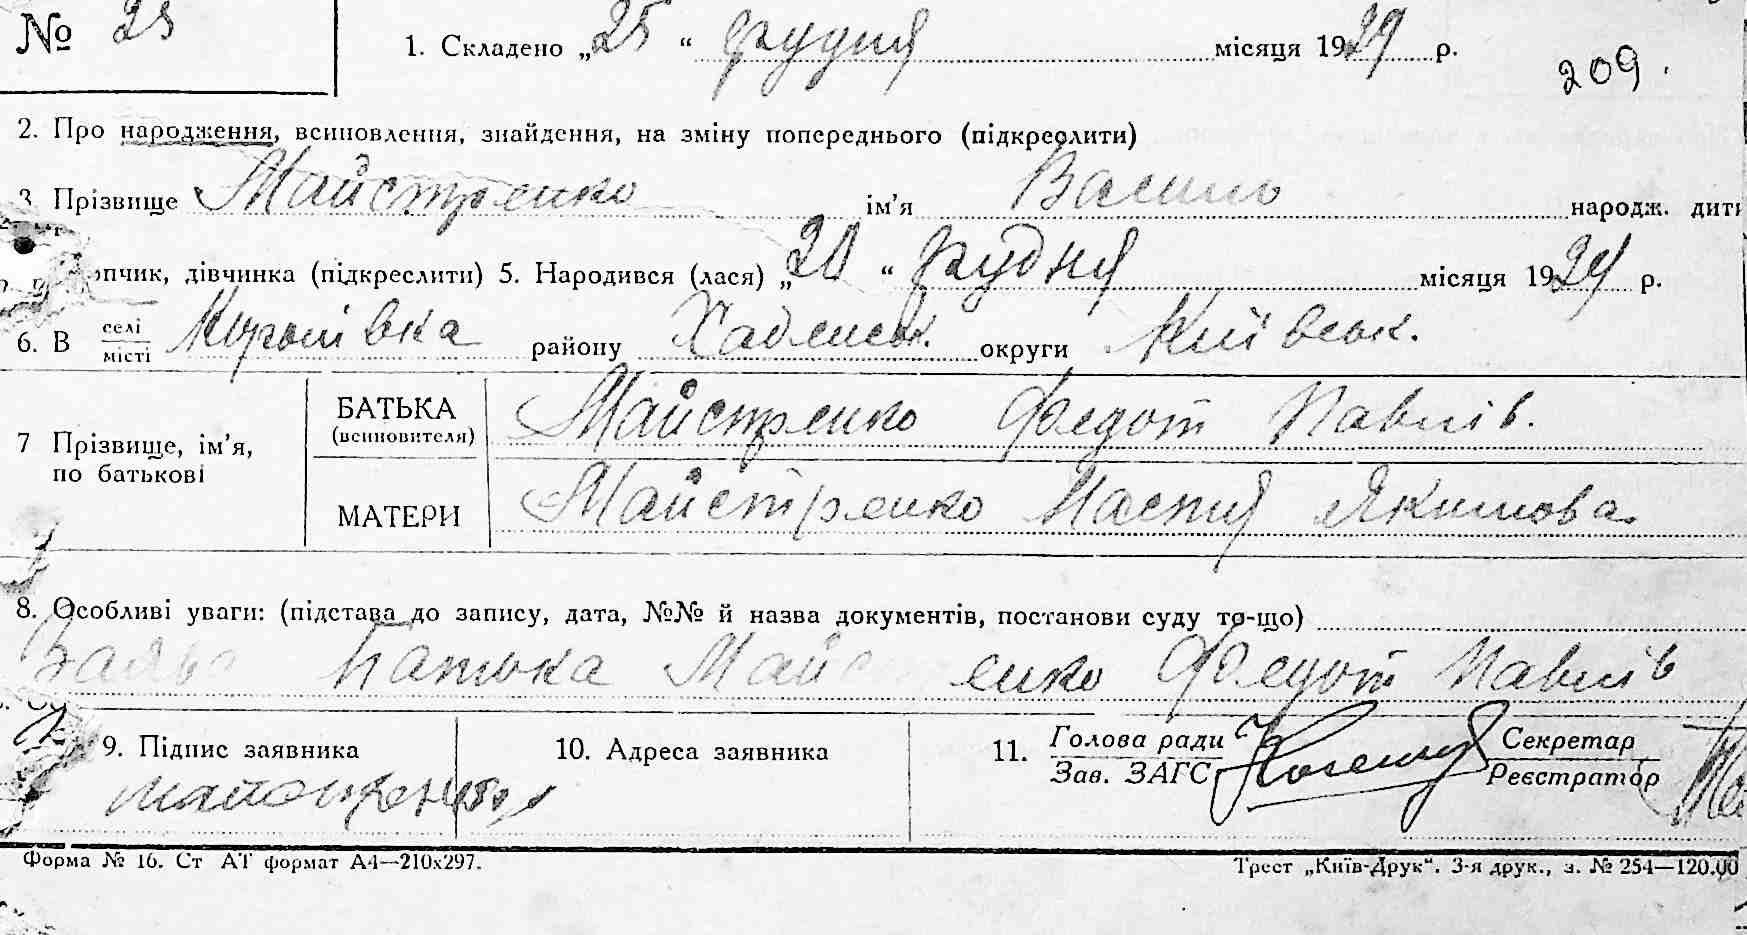 № 25
1. Складено „25“ грудня місяця 1929 р.
209.
2. Про народження, всиновлення, знайдення, на зміну попереднього (підкреслити)
3. Прізвище Майстренко ім’я Василь народж. дити
опчик, дівчинка (підкреслити) 5. Народився (лася) „20“ грудня місяця 1929 р.
6. В селі/місті району округи Київськ.
7 Прізвище, ім’я, по батькові
БАТЬКА (всиновителя) Майстренко Федот Павлів.
МАТЕРИ Майстренко Настя Якимова.
8. Особливі уваги: (підстава до запису, дата, №№ й назва документів, постанови суду то-що)
Заява батька Майс енко Федот Павлів
9. Підпис заявника
10. Адреса заявника
11. Голова ради Секретар
Зав. ЗАГС Реєстратор
Форма № 16. Ст АТ формат А4—210х297.
Трест „Київ-Друк“. 3-я друк., з. № 254—120.00